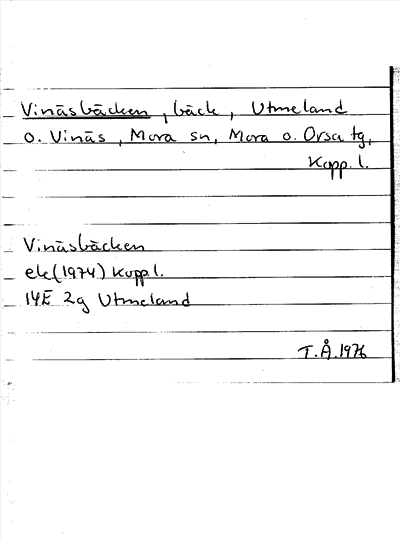 Vinäsbäcken, bäck, Utmeland
o. Vinäs, Mora sn, Mora o. Orsa tg,
Kopp. l.
Vinäsbäcken
ek (1974) Kopp l.
14E 2g Utmeland
T.Å. 1976